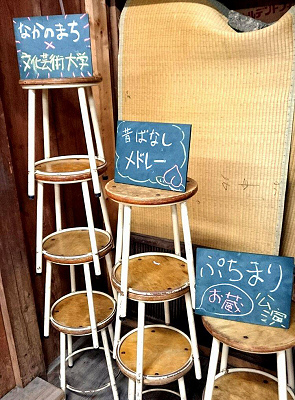 なかのまち
×
文化芸術大学
昔ばなし
メドレー
ぷちまり
お蔵 公演